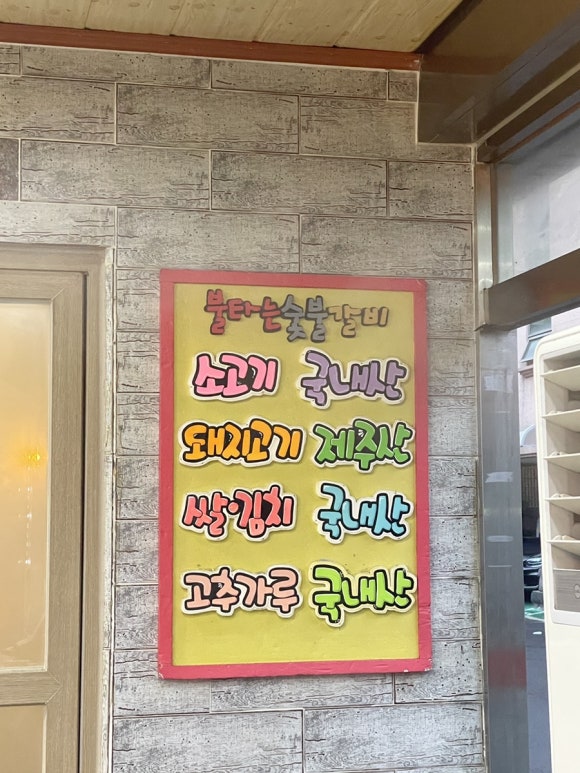 불타는숯불갈비
소고기 국내산
돼지고기 제주산
쌀·김치 국내산
고추가루 국내산